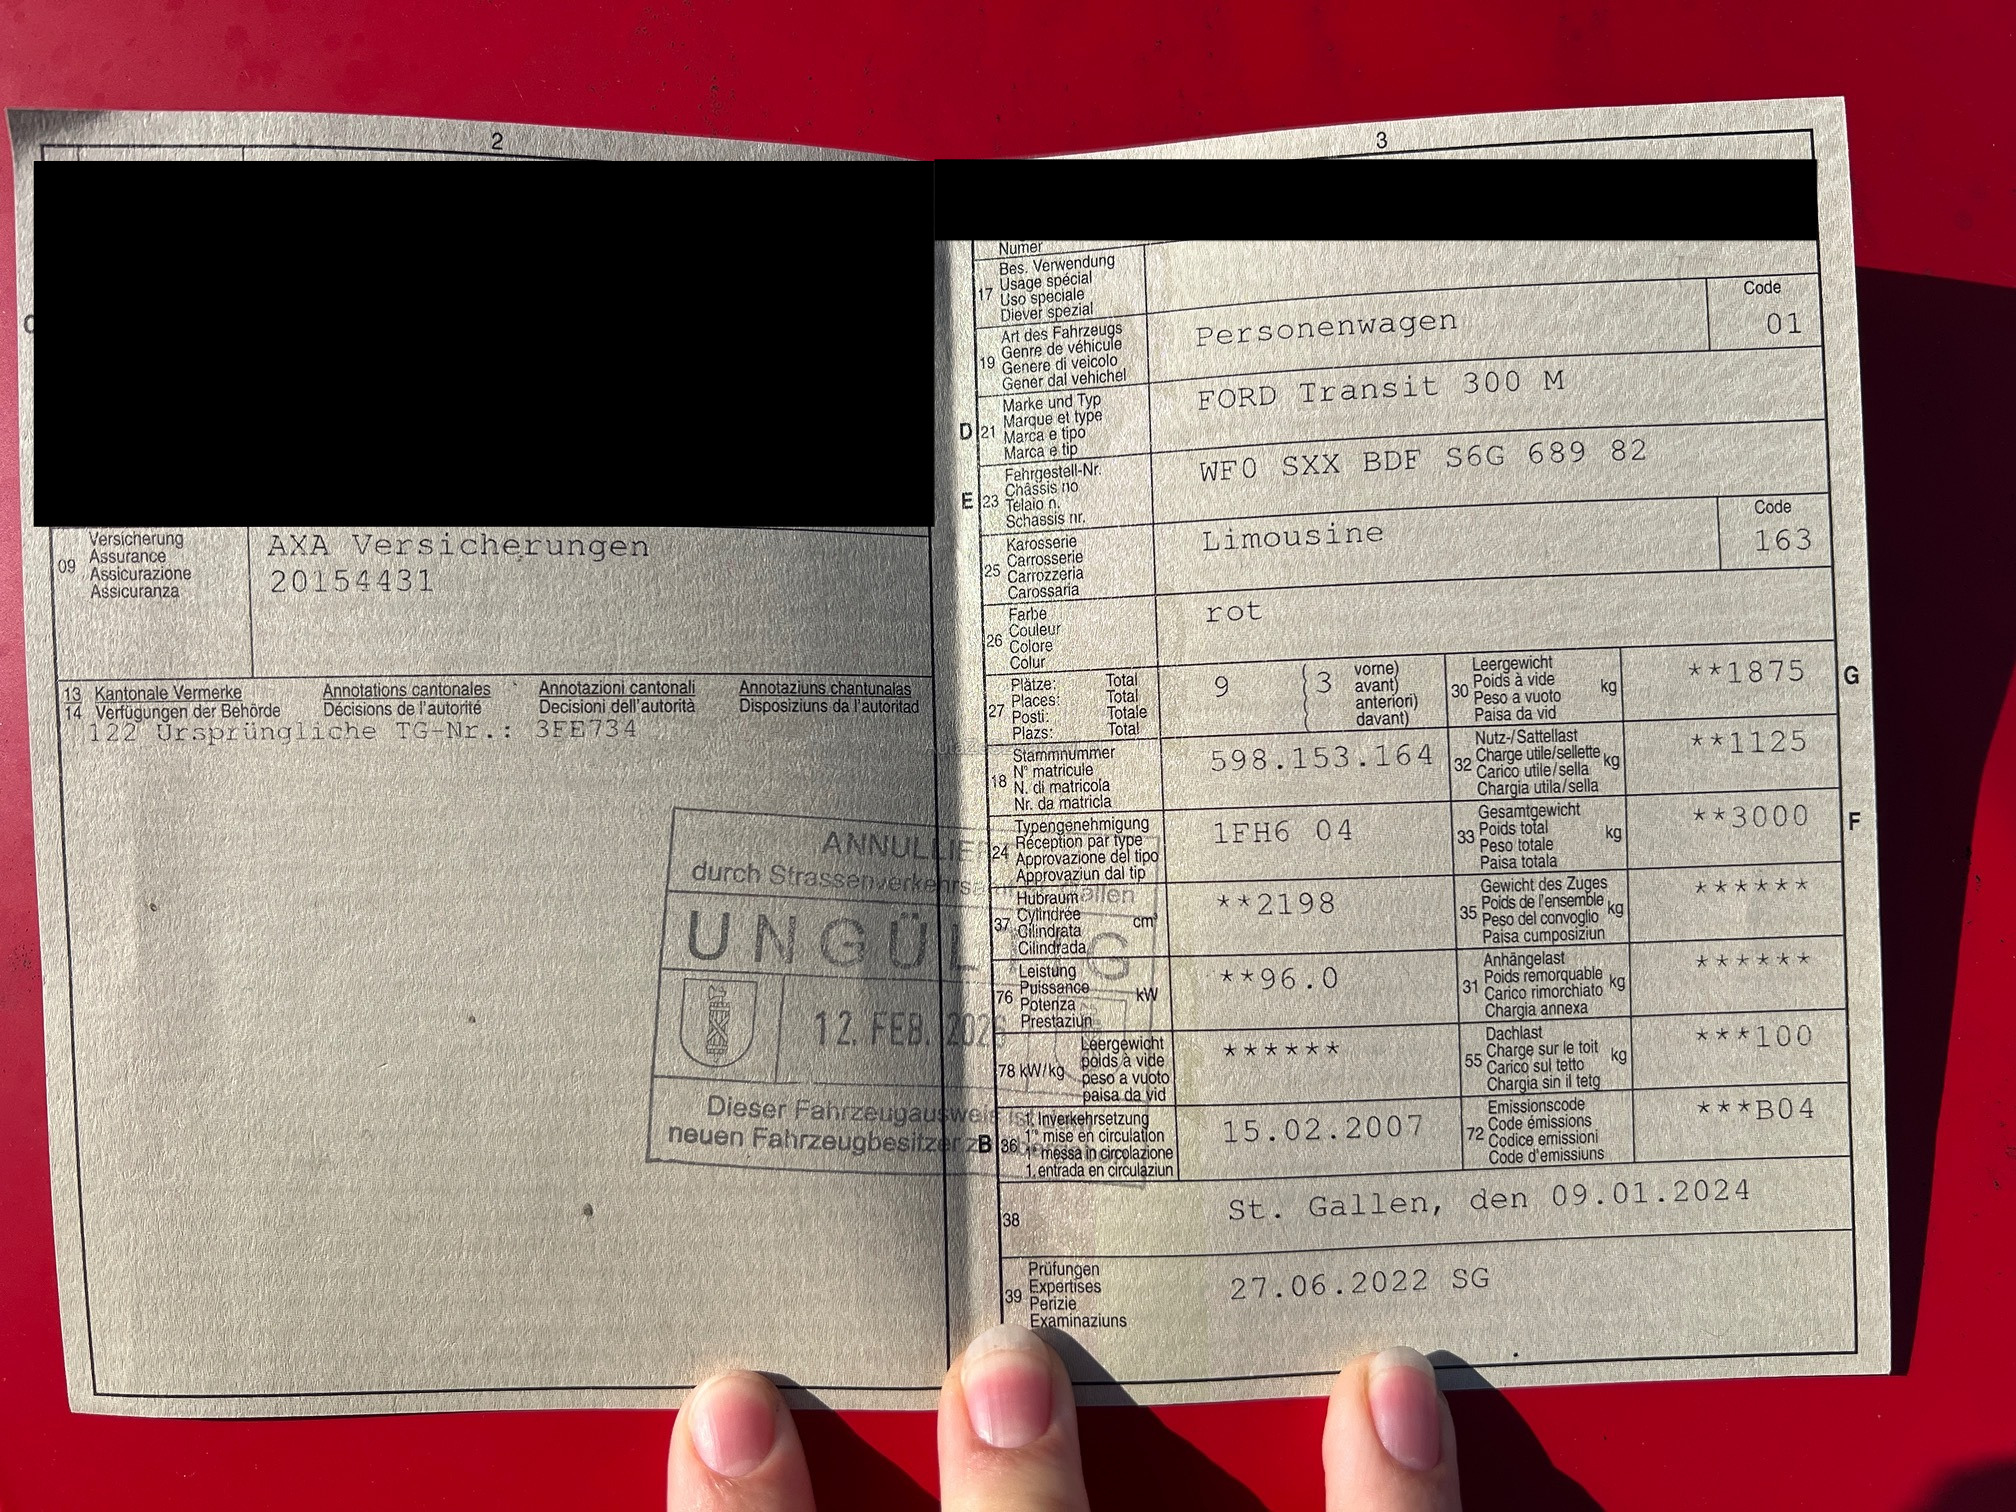 2
09
Versicherung
Assurance
Assicurazione
Assicuranza
AXA Versicherungen
20154431
13 Kantonale Vermerke Annotations cantonales Annotazioni cantonali Annotaziuns chantunalas
14 Verfügungen der Behörde Décisions de l'autorité Decisioni dell'autorità Disposiziuns da l'autoritad
122 Ursprüngliche TG-Nr.: 3FE734
ANNULLIE
durch Strassenverkehrsa allen
UNGÜLTIG
12. FEB. 2026
Dieser Fahrzeugausweis ist
neuen Fahrzeugbesitzer
3
Numer
17
Bes. Verwendung
Usage spécial
Uso speciale
Diever spezial
19
Art des Fahrzeugs
Genre de véhicule
Genere di veicolo
Gener dal vehichel
Personenwagen
Code
01
D 21
Marke und Typ
Marque et type
Marca e tipo
Marca e tip
FORD Transit 300 M
E 23
Fahrgestell-Nr.
Châssis no
Telaio n.
Schassis nr.
WF0 SXX BDF S6G 689 82
25
Karosserie
Carrosserie
Carrozzeria
Carossaria
Limousine
Code
163
26
Farbe
Couleur
Colore
Colur
rot
27
Plätze: Total
Places: Total
Posti: Totale
Plazs: Total
9
3
vorne)
avant)
anteriori)
davant)
30
Leergewicht
Poids à vide
Peso a vuoto
Paisa da vid
kg
**1875
G
18
Stammnummer
N° matricule
N. di matricola
Nr. da matricla
598.153.164
32
Nutz-/Sattellast
Charge utile/sellette
Carico utile/sella
Chargia utila/sella
kg
**1125
24
Typengenehmigung
Réception par type
Approvazione del tipo
Approvaziun dal tip
1FH6 04
33
Gesamtgewicht
Poids total
Peso totale
Paisa totala
kg
**3000
F
37
Hubraum
Cylindrée
Cilindrata
Cilindrada
cm³
**2198
35
Gewicht des Zuges
Poids de l'ensemble
Peso del convoglio
Paisa cumposiziun
kg
******
76
Leistung
Puissance
Potenza
Prestaziun
kW
**96.0
31
Anhängelast
Poids remorquable
Carico rimorchiato
Chargia annexa
kg
******
78 kW/kg
Leergewicht
poids à vide
peso a vuoto
paisa da vid
******
55
Dachlast
Charge sur le toit
Carico sul tetto
Chargia sin il tetg
kg
***100
B 36
1. Inverkehrsetzung
1re mise en circulation
1a messa in circolazione
1. entrada en circulaziun
15.02.2007
72
Emissionscode
Code émissions
Codice emissioni
Code d'emissiuns
***B04
38
St. Gallen, den 09.01.2024
39
Prüfungen
Expertises
Perizie
Examinaziuns
27.06.2022 SG